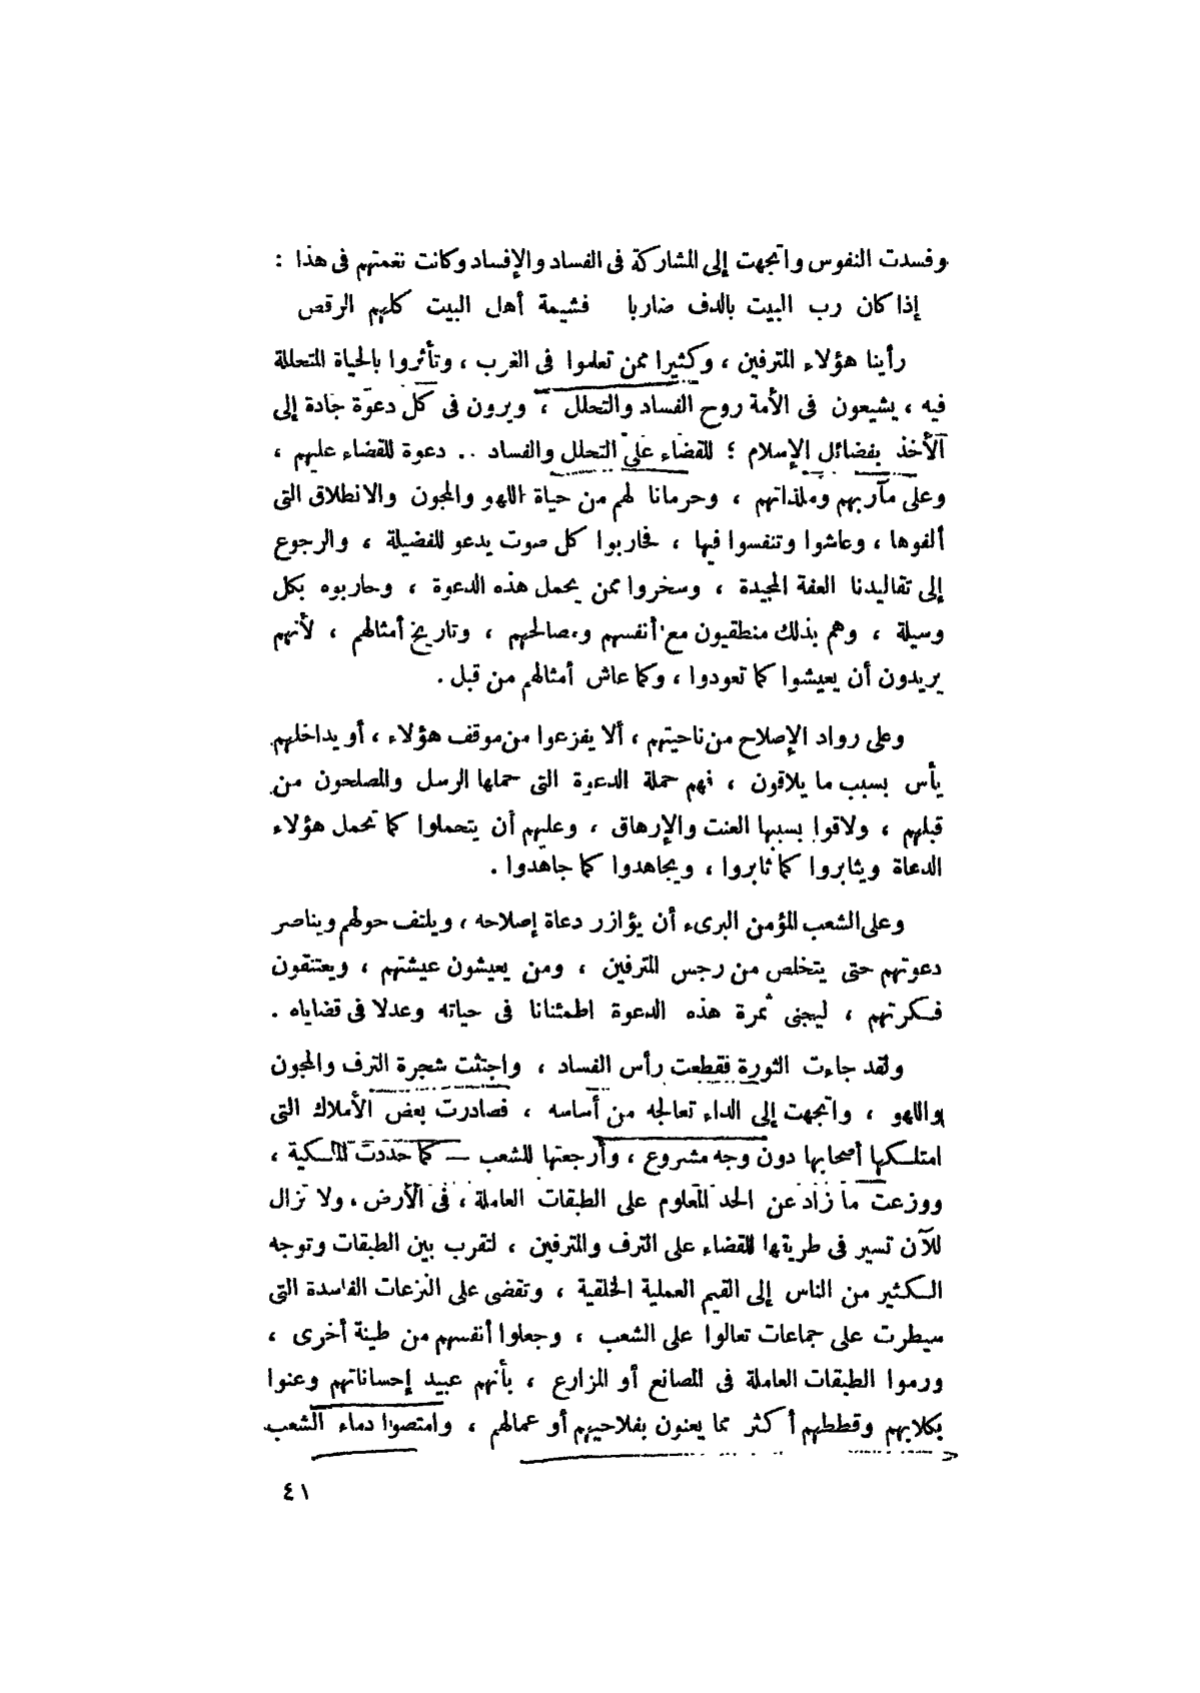 وفسدت النفوس واتجهت إلى المشاركة فى الفساد والإفساد وكانت نغمتهم فى هذا :
إذا كان رب البيت بالدف ضاربا فشيمة أهل البيت كلهم الرقص
رأينا هؤلاء المترفين ، وكثيرا ممن تعلموا فى الغرب ، وتأثروا بالحياة المتحللة
فيه ، يشيعون فى الأمة روح الفساد والتحلل ، ويرون فى كل دعوة جادة إلى
الأخذ بفضائل الإسلام ؛ للقضاء على التحلل والفساد .. دعوة للقضاء عليهم ،
وعلى مآربهم وملذاتهم ، وحرمانا لهم من حياة اللهو والمجون والانطلاق التى
ألفوها ، وعاشوا وتنفسوا فيها ، فحاربوا كل صوت يدعو للفضيلة ، والرجوع
إلى تقاليدنا العفة المجيدة ، وسخروا ممن يحمل هذه الدعوة ، وحاربوه بكل
وسيلة ، وهم بذلك منطقيون مع أنفسهم ومصالحهم ، وتاريخ أمثالهم ، لأنهم
يريدون أن يعيشوا كما تعودوا ، وكما عاش أمثالهم من قبل .
وعلى رواد الإصلاح من ناحيتهم ، ألا يفزعوا من موقف هؤلاء ، أو يداخلهم
يأس بسبب ما يلاقون ، فهم حملة الدعوة التى حملها الرسل والمصلحون من
قبلهم ، ولاقوا بسببها العنت والإرهاق ، وعليهم أن يتحملوا كما تحمل هؤلاء
الدعاة ويثابروا كما ثابروا ، ويجاهدوا كما جاهدوا .
وعلى الشعب المؤمن البرىء أن يؤازر دعاة إصلاحه ، ويلتف حولهم ويناصر
دعوتهم حتى يتخلص من رجس المترفين ، ومن يعيشون عيشتهم ، ويعتنقون
فكرتهم ، ليجنى ثمرة هذه الدعوة اطمئنانا فى حياته وعدلا فى قضاياه .
ولقد جاءت الثورة فقطعت رأس الفساد ، واجتثت شجرة الترف والمجون
واللهو ، واتجهت إلى الداء تعالجه من أساسه ، فصادرت بعض الأملاك التى
امتلكها أصحابها دون وجه مشروع ، وأرجعتها للشعب — كما حددت الملكية ،
ووزعت ما زاد عن الحد المعلوم على الطبقات العاملة ، فى الأرض ، ولا تزال
للآن تسير فى طريقها للقضاء على الترف والمترفين ، لتقرب بين الطبقات وتوجه
الكثير من الناس إلى القيم العملية الخلقية ، وتقضى على النزعات الفاسدة التى
سيطرت على جماعات تعالوا على الشعب ، وجعلوا أنفسهم من طينة أخرى ،
ورموا الطبقات العاملة فى المصانع أو المزارع ، بأنهم عبيد إحساناتهم وعنوا
بكلابهم وقططهم أكثر مما يعنون بفلاحيهم أو عمالهم ، وامتصوا دماء الشعب
٤١